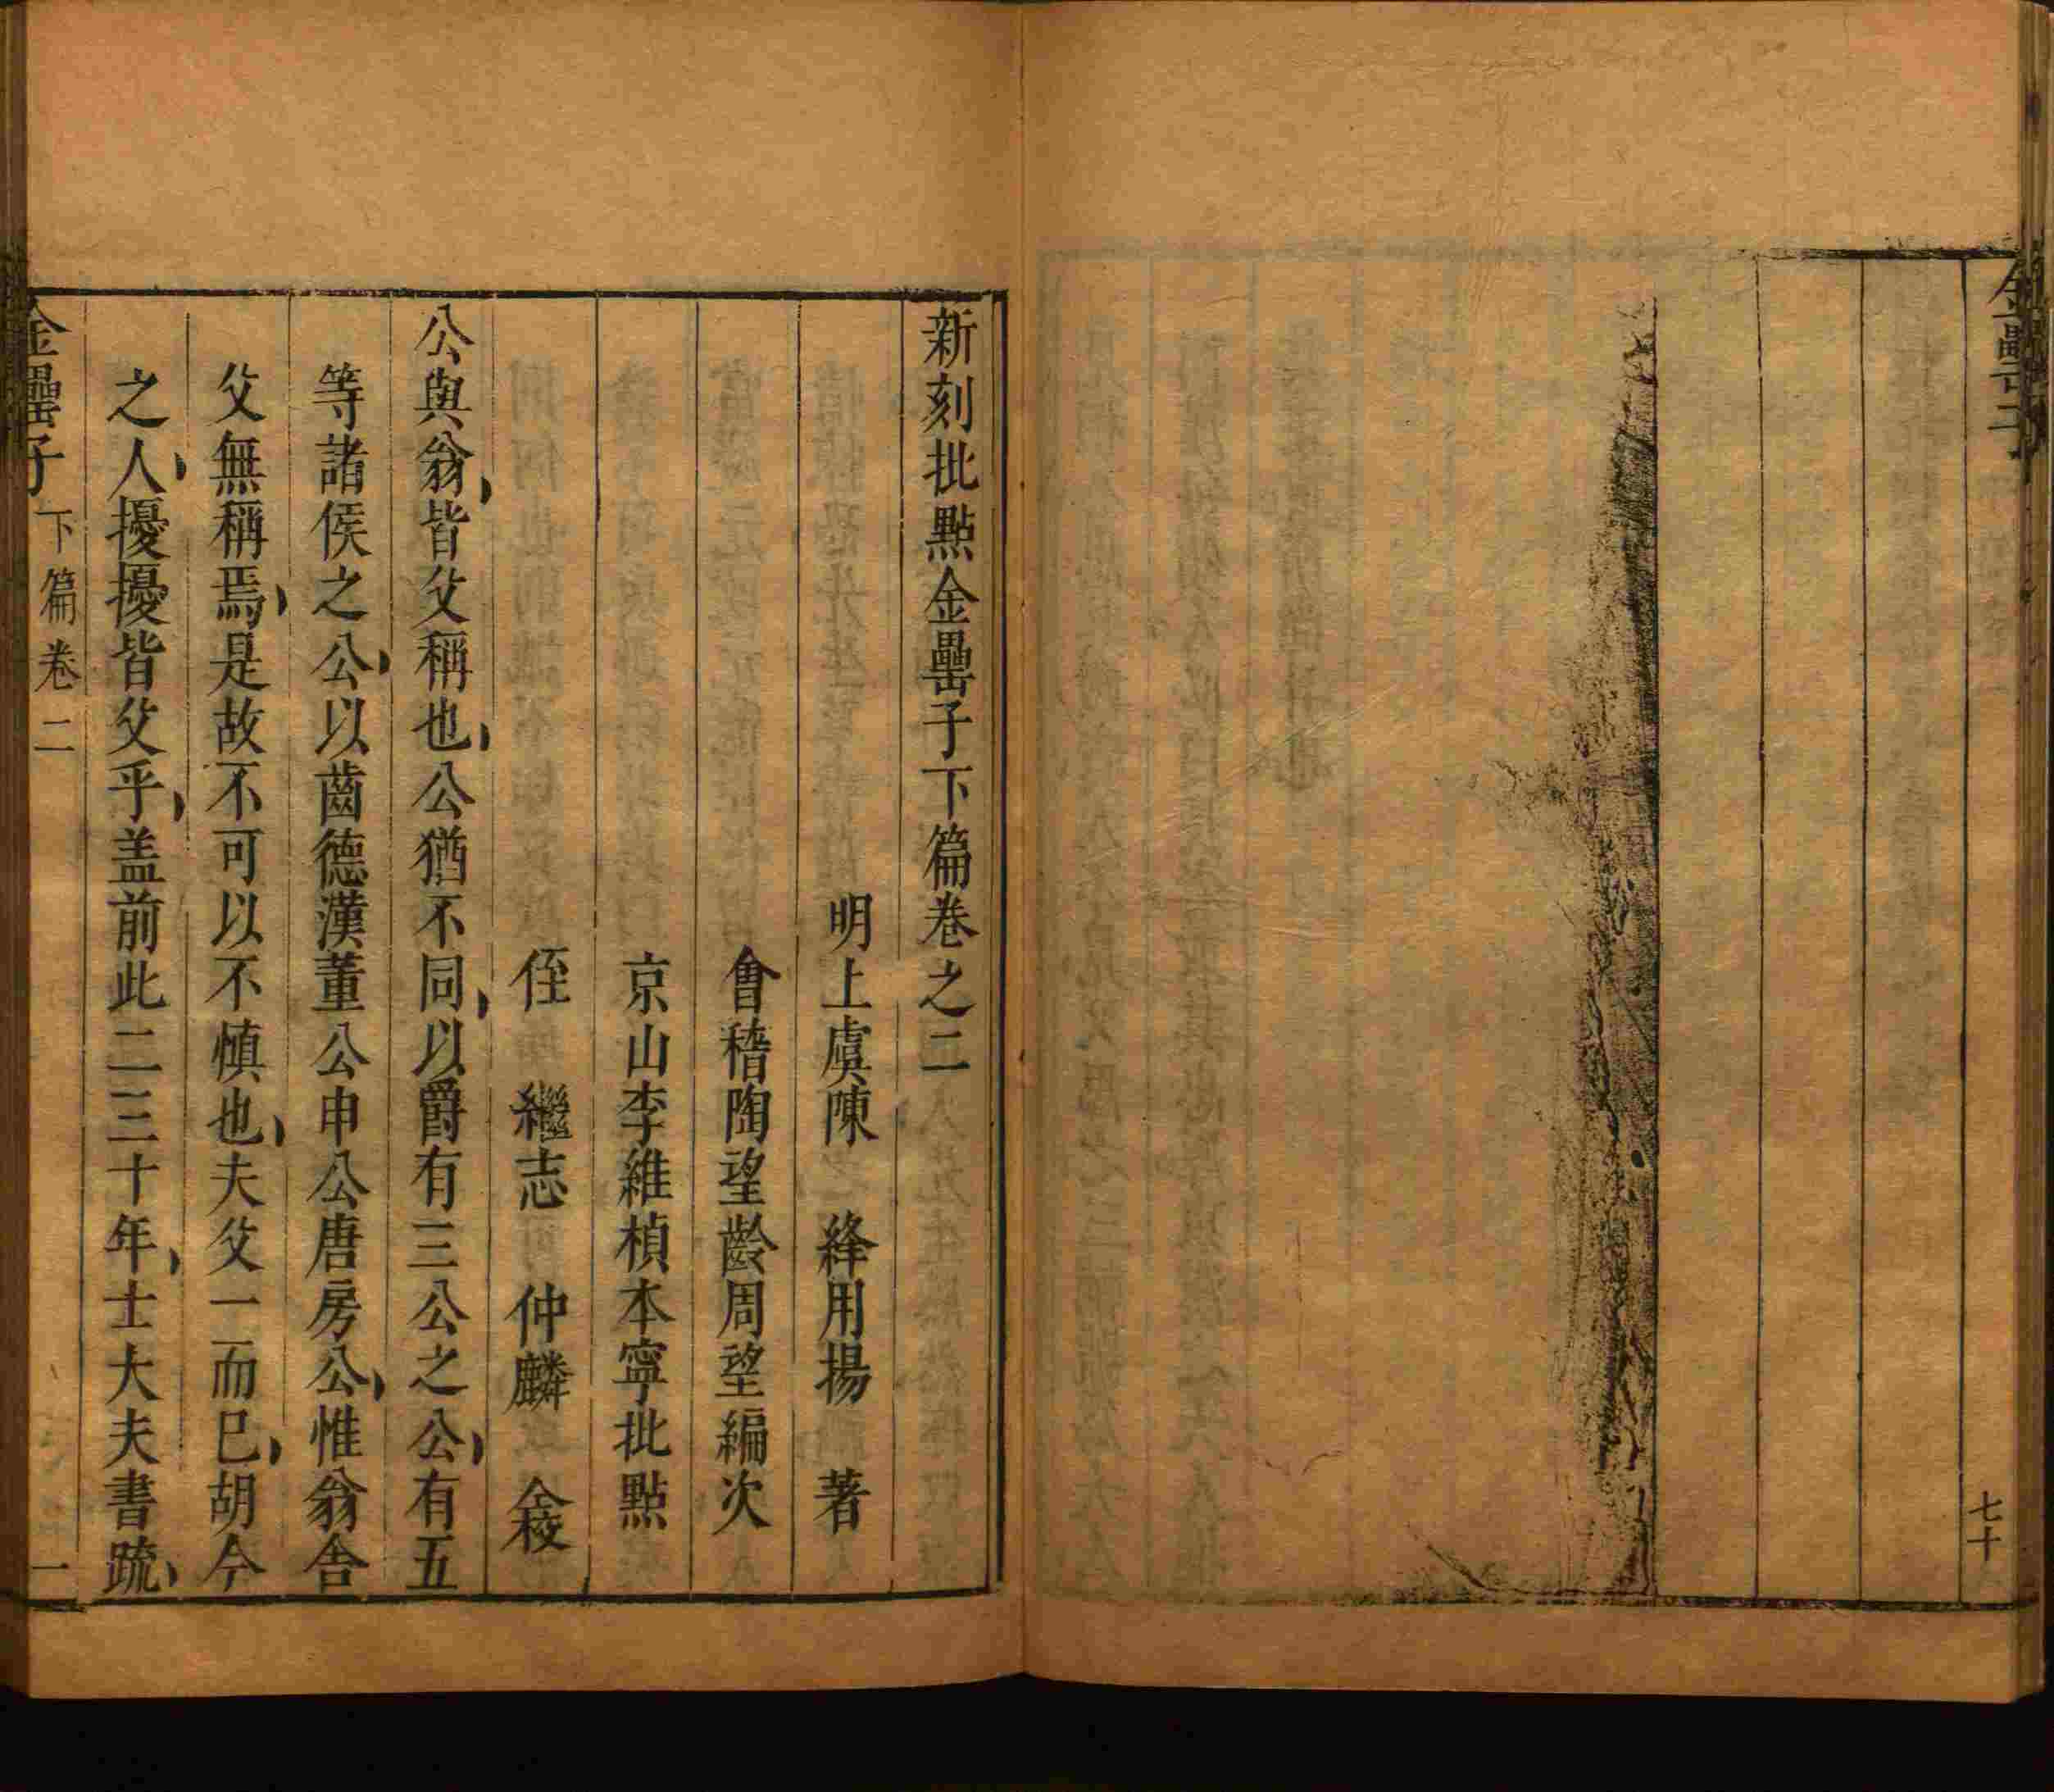 金罍子
七十
新刻批點金罍子下篇卷之二
明上虞陳　絳用揚　著
會稽陶望齡周望編次
京山李維楨本寧批點
侄　繼志　仲麟　仝校
公與翁皆父稱也公猶不同以爵有三公之公有五
等諸侯之公以齒德漢董公申公唐房公惟翁舍
父無稱焉是故不可以不慎也夫父一而已胡今
之人擾擾皆父乎盖前此二三十年士大夫書疏
金罍子　下篇卷二　一